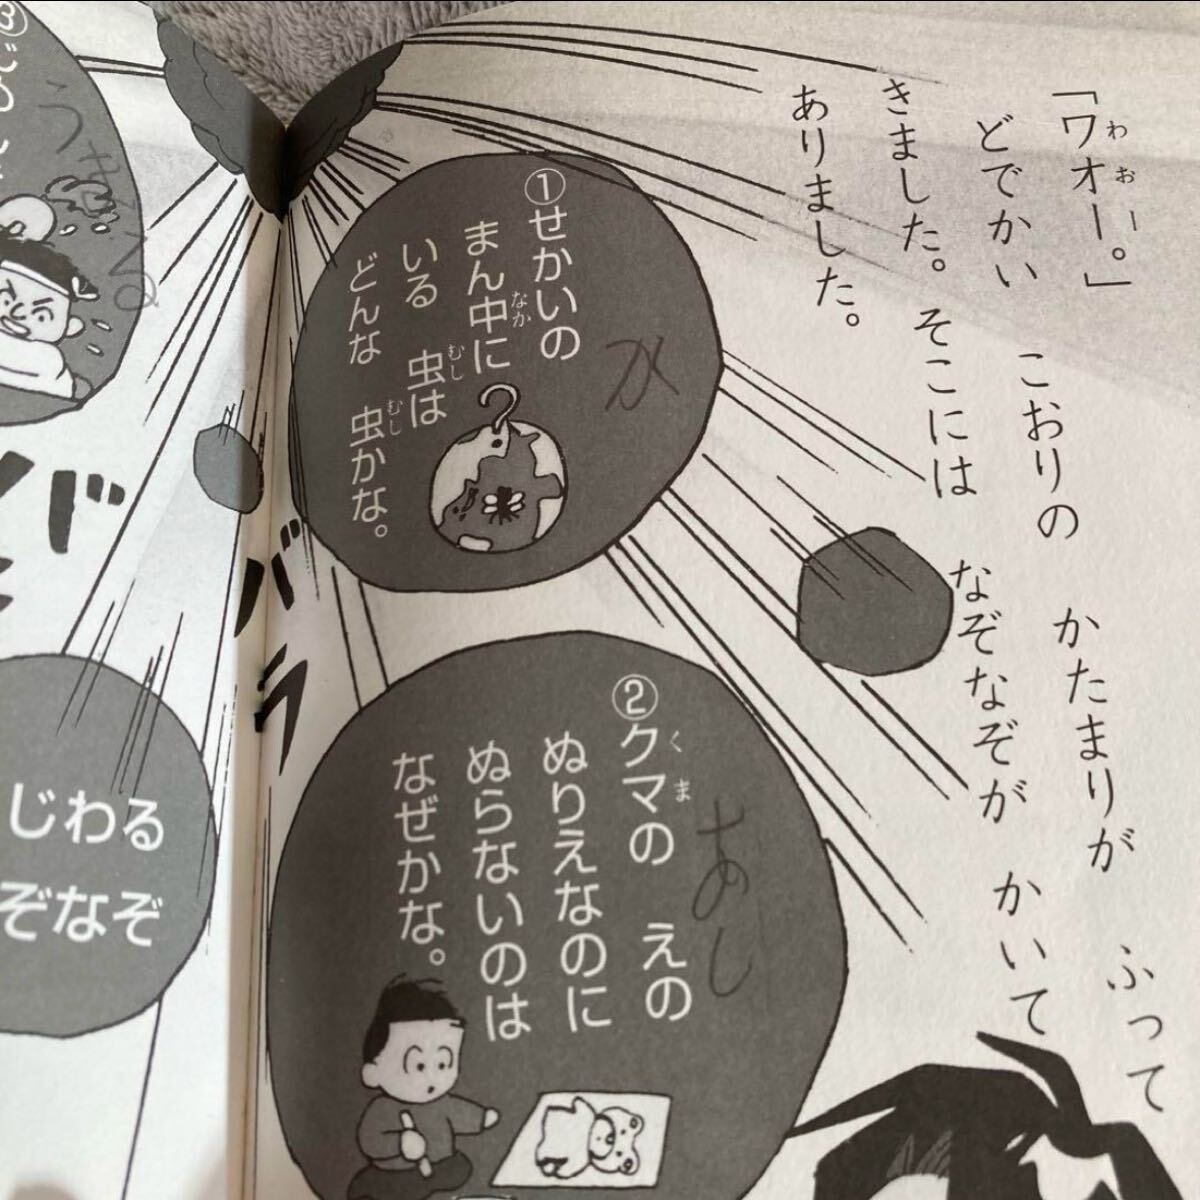 「ワオー。」
わおー
どでかい こおりの かたまりが ふって
きました。そこには なぞなぞが かいて
ありました。
①せかいの
まん中に
なか
いる 虫は
むし
どんな 虫かな。
むし
か
②クマの えの
くま
ぬりえなのに
ぬらないのは
なぜかな。
あし
バラ
バ
③
うまる
じわる
ぞなぞ